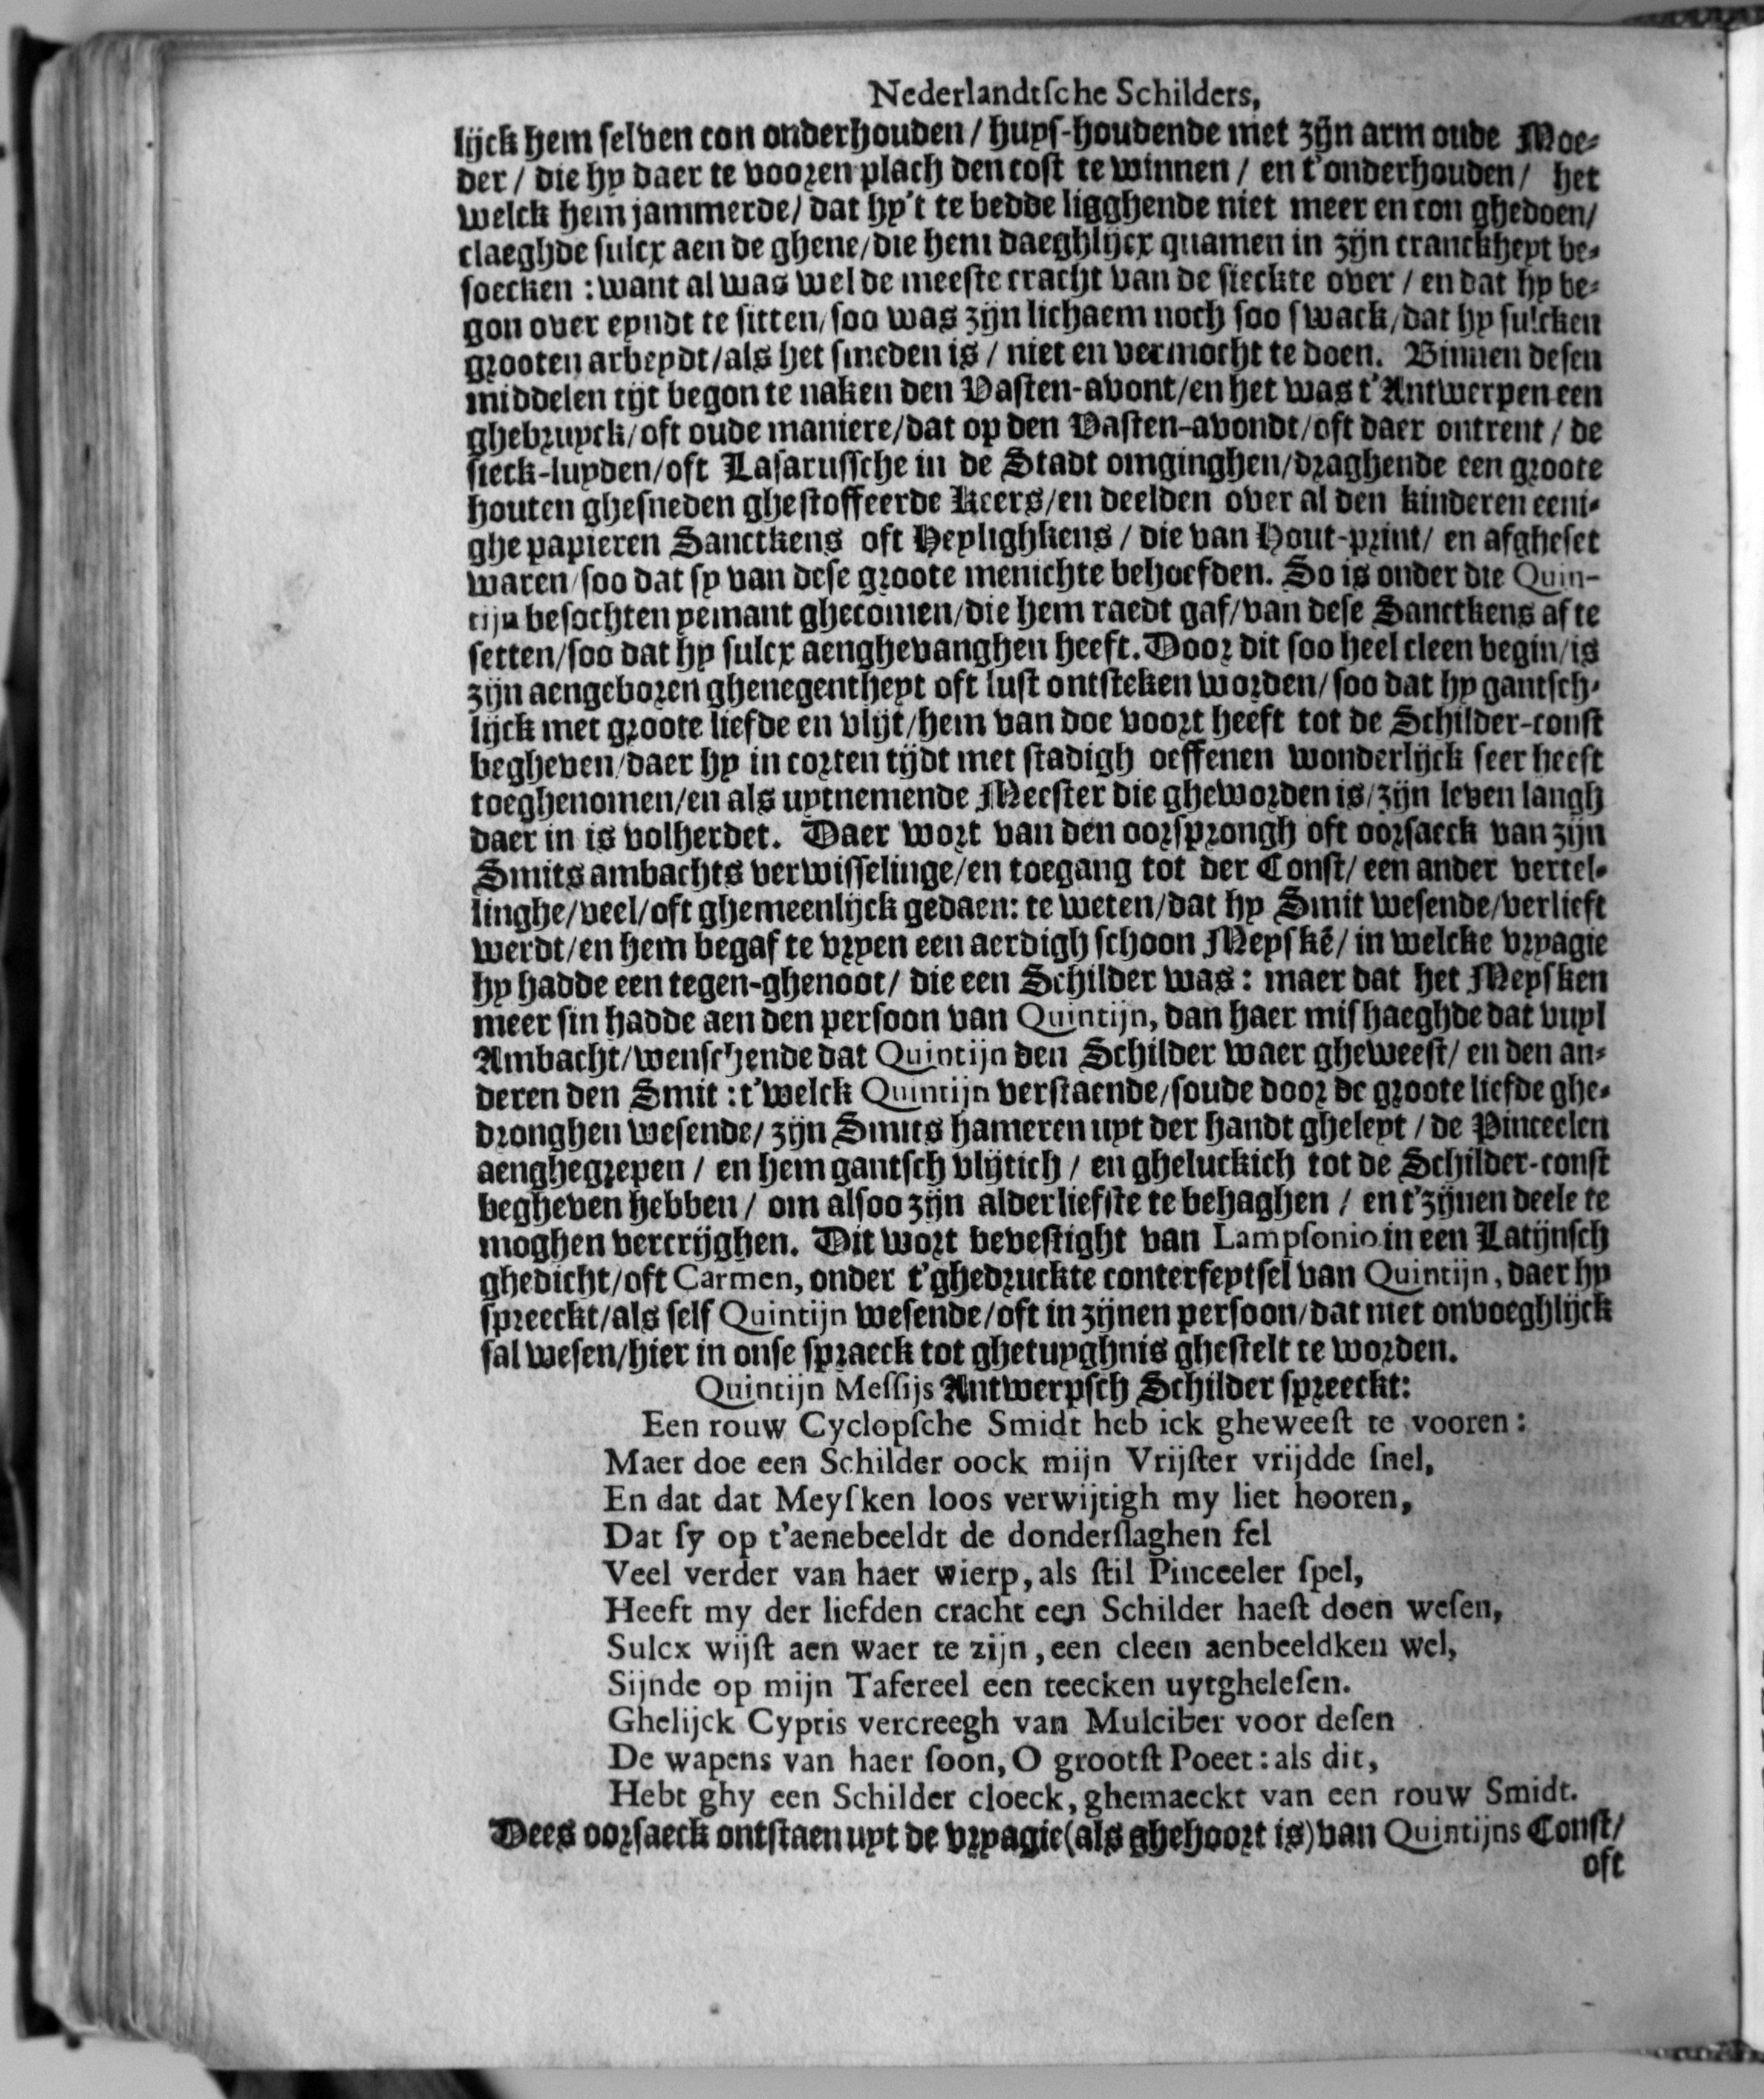 Nederlandtſche Schilders,
lijck hem ſelven con onderhouden / huys-houdende met zijn arm oude Moe-
der / die hy daer te vooren plach den cost te winnen / en t'onderhouden / het
welck hem jammerde / dat hy't te bedde ligghende niet meer en con ghedoen /
claeghde ſulcx aen de ghene / die hem daeghlijcx quamen in zijn cranckheyt be-
ſoecken : want al was wel de meeste cracht van de ſieckte over / en dat hy be-
gon over eyndt te ſitten / ſoo was zijn lichaem noch ſoo ſwack / dat hy ſulcken
grooten arbeydt / als het ſmeden is / niet en vermocht te doen. Binnen deſen
middelen tijt begon te naken den Vasten-avont / en het was t'Antwerpen een
ghebruyck / oft oude maniere / dat op den Vasten-avondt / oft daer ontrent / de
ſieck-luyden / oft Laſaruſſche in de Stadt omginghen / draghende een groote
houten gheſneden ghestoffeerde Keers / en deelden over al den kinderen eeni-
ghe papieren Sanctkens oft Heylighkens / die van Hout-print / en afgheſet
waren / ſoo dat ſy van deſe groote menichte behoefden. So is onder die Quin-
tijn beſochten yemant ghecomen / die hem raedt gaf / van deſe Sanctkens af te
ſetten / ſoo dat hy ſulcx aenghevanghen heeft. Door dit ſoo heel cleen begin / is
zijn aengeboren ghenegentheyt oft lust ontsteken worden / ſoo dat hy gantſch-
lijck met groote liefde en vlijt / hem van doe voort heeft tot de Schilder-const
begheven / daer hy in corten tijdt met stadigh oeffenen wonderlijck ſeer heeft
toeghenomen / en als uytnemende Meester die gheworden is / zijn leven langh
daer in is volherdet. Daer wort van den oorſprongh oft oorſaeck van zijn
Smits ambachts verwiſſelinge / en toegang tot der Const / een ander vertel-
linghe / veel / oft ghemeenlijck gedaen: te weten / dat hy Smit weſende / verlieft
werdt / en hem begaf te vryen een aerdigh ſchoon Meyſkẽ / in welcke vryagie
hy hadde een tegen-ghenoot / die een Schilder was : maer dat het Meyſken
meer ſin hadde aen den perſoon van Quintijn, dan haer miſhaeghde dat vuyl
Ambacht / wenſchende dat Quintijn den Schilder waer gheweest / en den an-
deren den Smit : t'welck Quintijn verstaende / ſoude door de groote liefde ghe-
dronghen weſende / zijn Smits hameren uyt der handt gheleyt / de Pinceelen
aenghegrepen / en hem gantſch vlijtich / en gheluckich tot de Schilder-const
begheven hebben / om alſoo zijn alderliefste te behaghen / en t'zijnen deele te
moghen vercrijghen. Dit wort bevestight van Lampſonio in een Latijnſch
ghedicht / oft Carmen, onder t'ghedruckte conterfeytſel van Quintijn, daer hy
ſpreeckt / als ſelf Quintijn weſende / oft in zijnen perſoon / dat niet onvoeghlijck
ſal weſen / hier in onſe ſpraeck tot ghetuyghnis ghestelt te worden.
Quintijn Meſſijs Antwerpſch Schilder ſpreeckt:
Een rouw Cyclopſche Smidt heb ick gheweeſt te vooren :
Maer doe een Schilder oock mijn Vrijſter vrijdde ſnel,
En dat dat Meyſken loos verwijtigh my liet hooren,
Dat ſy op t'aenebeeldt de donderſlaghen fel
Veel verder van haer wierp, als ſtil Pinceeler ſpel,
Heeft my der liefden cracht een Schilder haeſt doen weſen,
Sulcx wijſt aen waer te zijn, een cleen aenbeeldken wel,
Sijnde op mijn Tafereel een teecken uytgheleſen.
Ghelijck Cypris vercreegh van Mulciber voor deſen
De wapens van haer ſoon, O grootſt Poeet : als dit,
Hebt ghy een Schilder cloeck, ghemaeckt van een rouw Smidt.
Dees oorſaeck ontstaen uyt de vryagie (als ghehoort is) van Quintijns Const /
oft